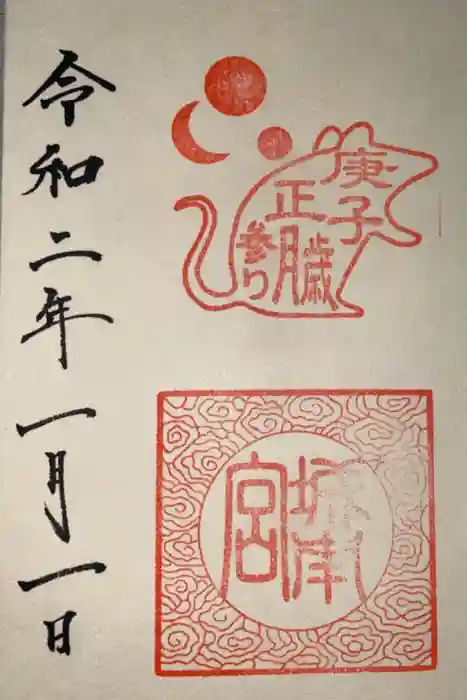 庚子歳
正月
参り
城南
宮
令和二年一月一日